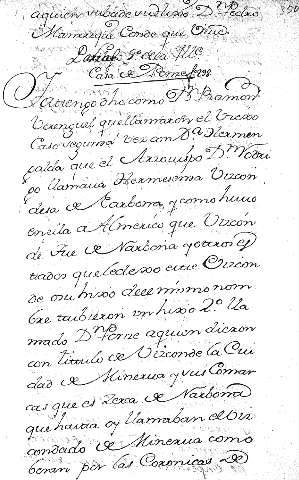 aquien subcede su hixo Dn Pedro
Manrrique Conde que oy
Casa de
Ya tengo dho como Dn Ramon
Verenguel que llamaron el Viexo
Caso segunda vez con Da Hermen
galda que el Arzouispo Dn Rodri
go llamaua Hermesenda Vizcon
desa de Narbona, y como huuo
en ella a Almerico que Vizcon
de fue de Narbona y otros es
tados que le dexo este Vizcon
de su hixo de el mismo nom
bre tubieron un hixo 2o lla
mado Dn aquien dieron
con titulo de Vizconde la Ciu
dad de Minerua y sus Comar
cas que es zerca de Narbona
que hauia oy llamaban el Viz
condado de Minerua como
beran por las Coronicas de